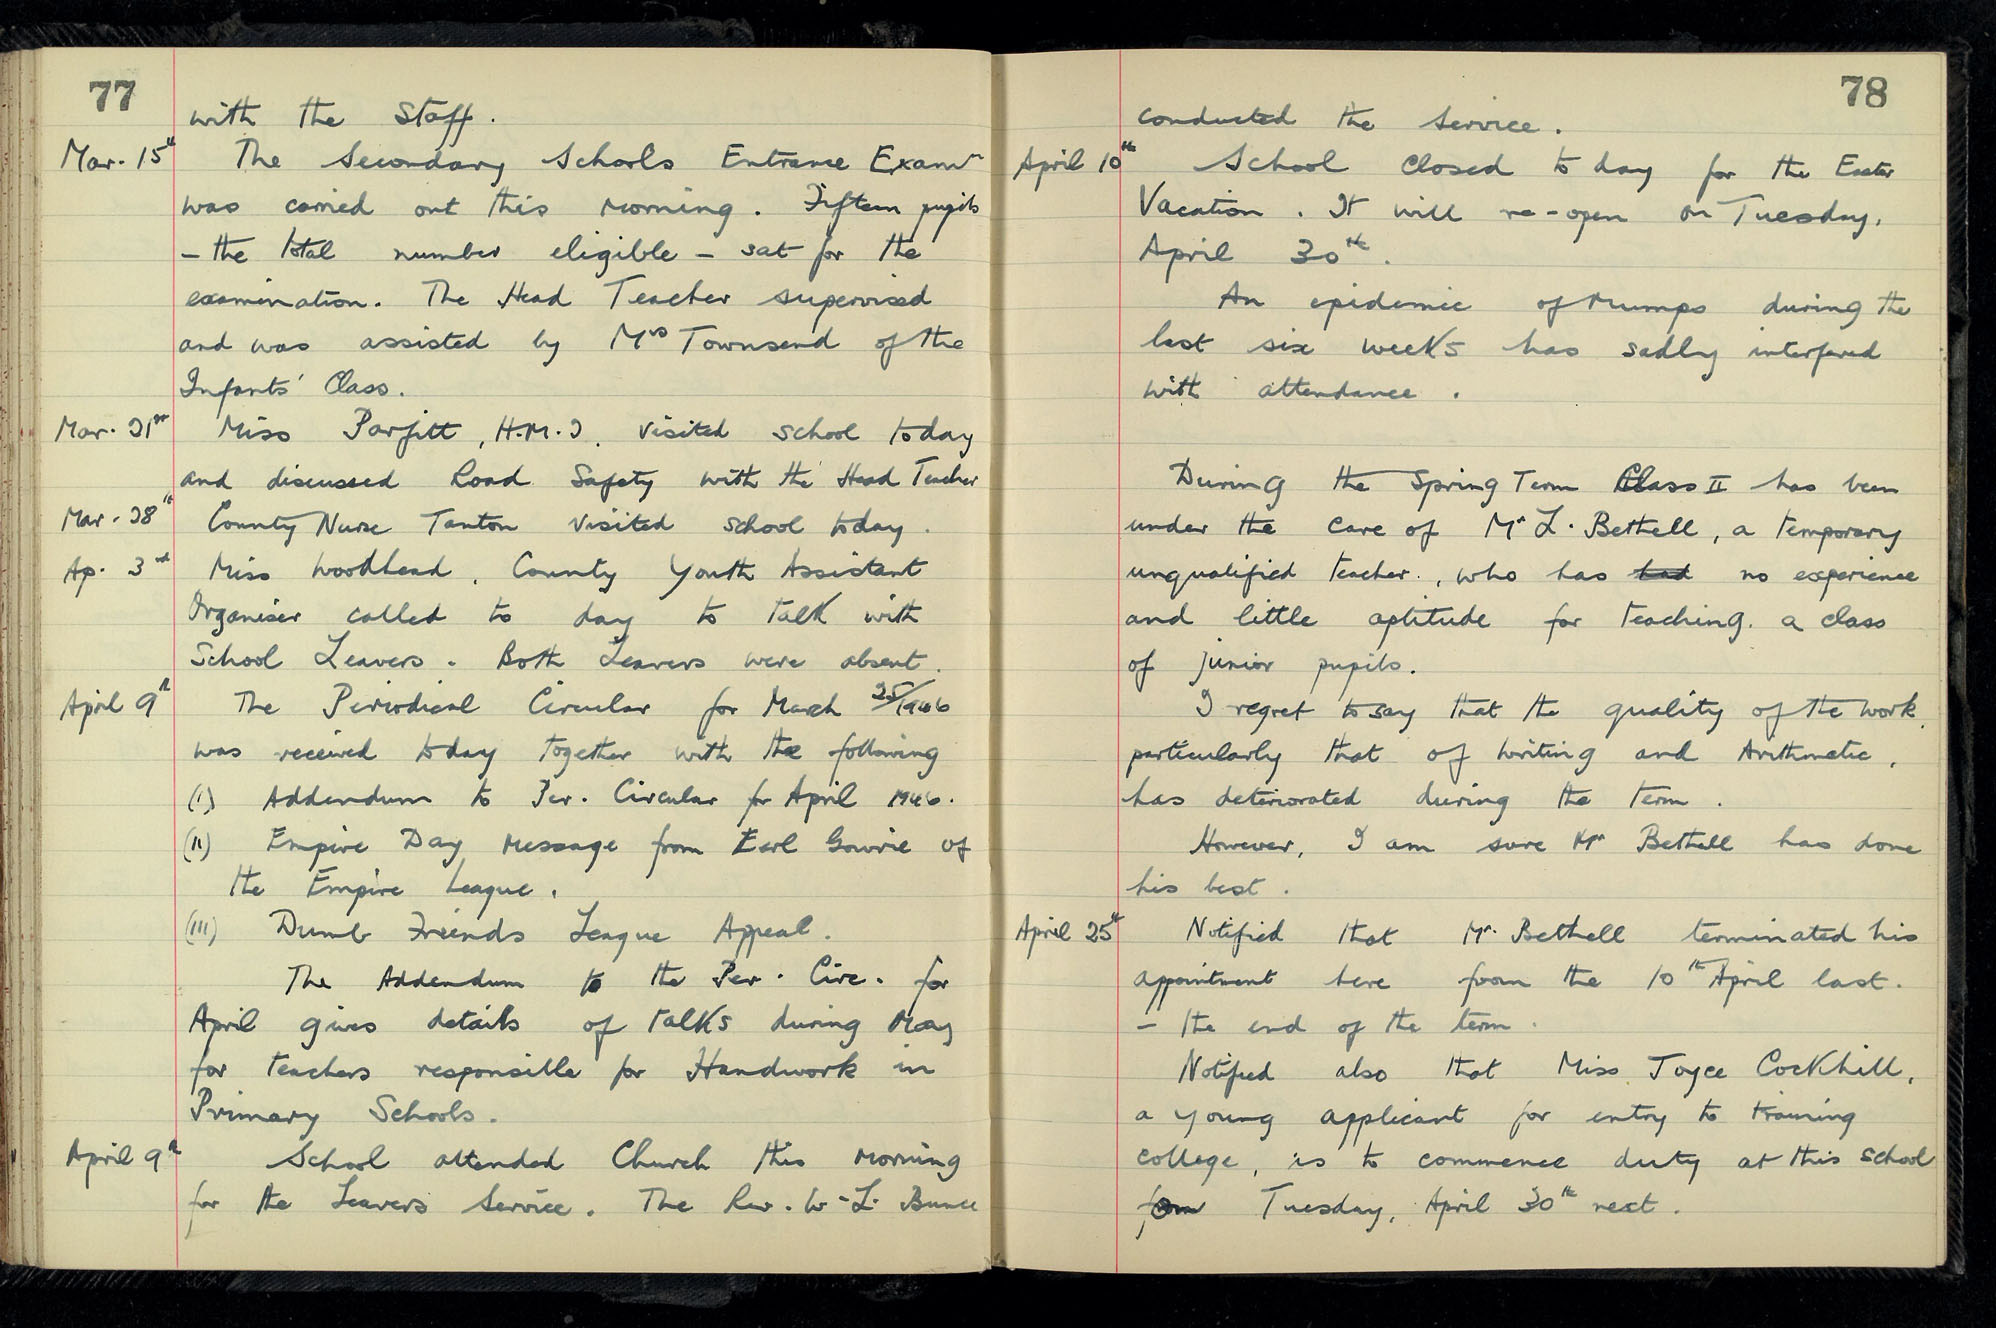 77
with the Staff.
Mar. 15th The Secondary Schools Entrance Examn
was carried out this morning. Fifteen pupils
- the total number eligible - sat for the
examination. The Head Teacher supervised
and was assisted by Mrs Townsend of the
Infants' Class.
Mar. 21st Miss Parfitt, H.M.I. visited school today
and discussed Road Safety with the Head Teacher
Mar. 28th County Nurse Tanton visited school today.
Ap. 3rd Miss Woodhead, County Youth Assistant
Organiser called to day to talk with
School Leavers. Both Leavers were absent.
April 9th The Periodical Circular for March 25/1946
was received today together with the following
(i) Addendum to Per. Circular for April 1946.
(ii) Empire Day message from Earl Gowrie of
the Empire League.
(iii) Dumb Friends League Appeal.
The Addendum to the Per. Circ. for
April gives details of talks during May
for teachers responsible for Handwork in
Primary Schools.
April 9th School attended Church this morning
for the Leavers Service. The Rev. W. L. Bunce
78
conducted the service.
April 10th School closed to day for the Easter
Vacation. It will re-open on Tuesday,
April 30th.
An epidemic of mumps during the
last six weeks has sadly interfered
with attendance.
During the Spring Term Class II has been
under the care of Mr L. Bethell, a temporary
unqualified teacher, who has had no experience
and little aptitude for teaching a class
of junior pupils.
I regret to say that the quality of the work,
particularly that of writing and Arithmetic,
has deteriorated during the term.
However, I am sure Mr Bethell has done
his best.
April 25th Notified that Mr. Bethell terminated his
appointment here from the 10th April last.
- the end of the term.
Notified also that Miss Joyce Cockhill,
a young applicant for entry to training
college, is to commence duty at this school
from Tuesday, April 30th next.